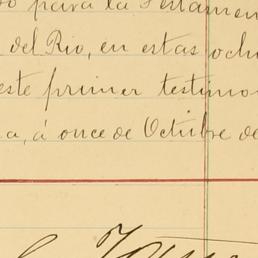 para la Testamen
del Rio, en estas och
este primer testimo
a, á once de Octubre de